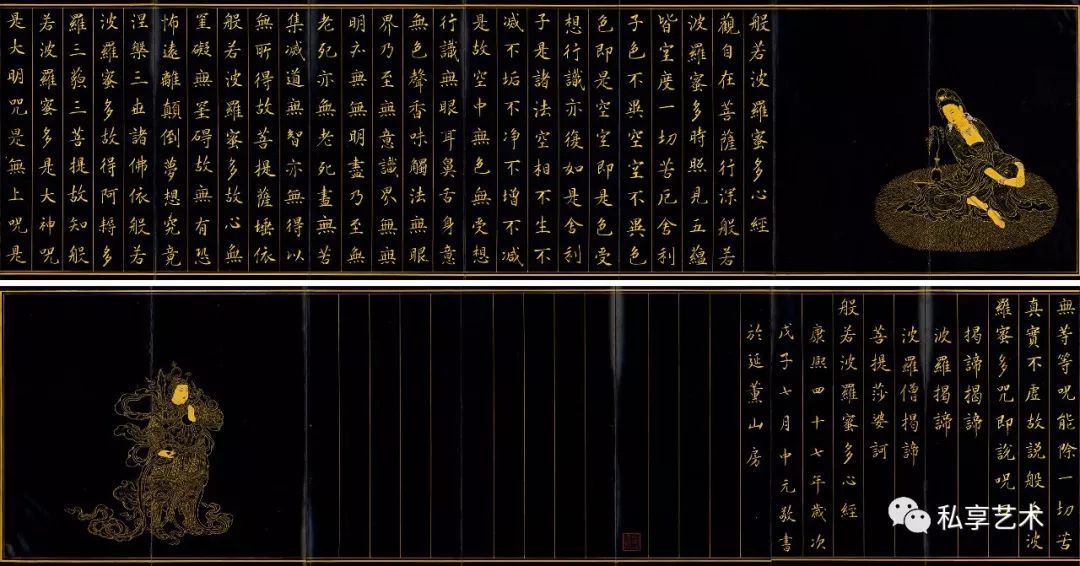 般若波羅蜜多心經
觀自在菩薩行深般若
波羅蜜多時照見五蘊
皆空度一切苦厄舍利
子色不異空空不異色
色即是空空即是色受
想行識亦復如是舍利
子是諸法空相不生不
减不垢不净不增不减
是故空中無色無受想
行識無眼耳鼻舌身意
無色聲香味觸法無眼
界乃至無意識界無無
明亦無無明盡乃至無
老死亦無老死盡無苦
集减道無智亦無得以
無所得故菩提薩埵依
般若波羅蜜多故心無
罣礙無罣碍故無有恐
怖遠離顛倒夢想究竟
涅槃三世諸佛依般若
波羅蜜多故得阿耨多
羅三藐三菩提故知般
若波羅蜜多是大神咒
是大明咒是無上咒是
無等等咒能除一切苦
真實不虛故說般若波
羅蜜多咒即說咒
揭諦揭諦
波羅揭諦
波羅僧揭諦
菩提莎婆訶
般若波羅蜜多心經
康熙四十七年歲次
戊子七月中元敬書
於延薰山房
私享艺术